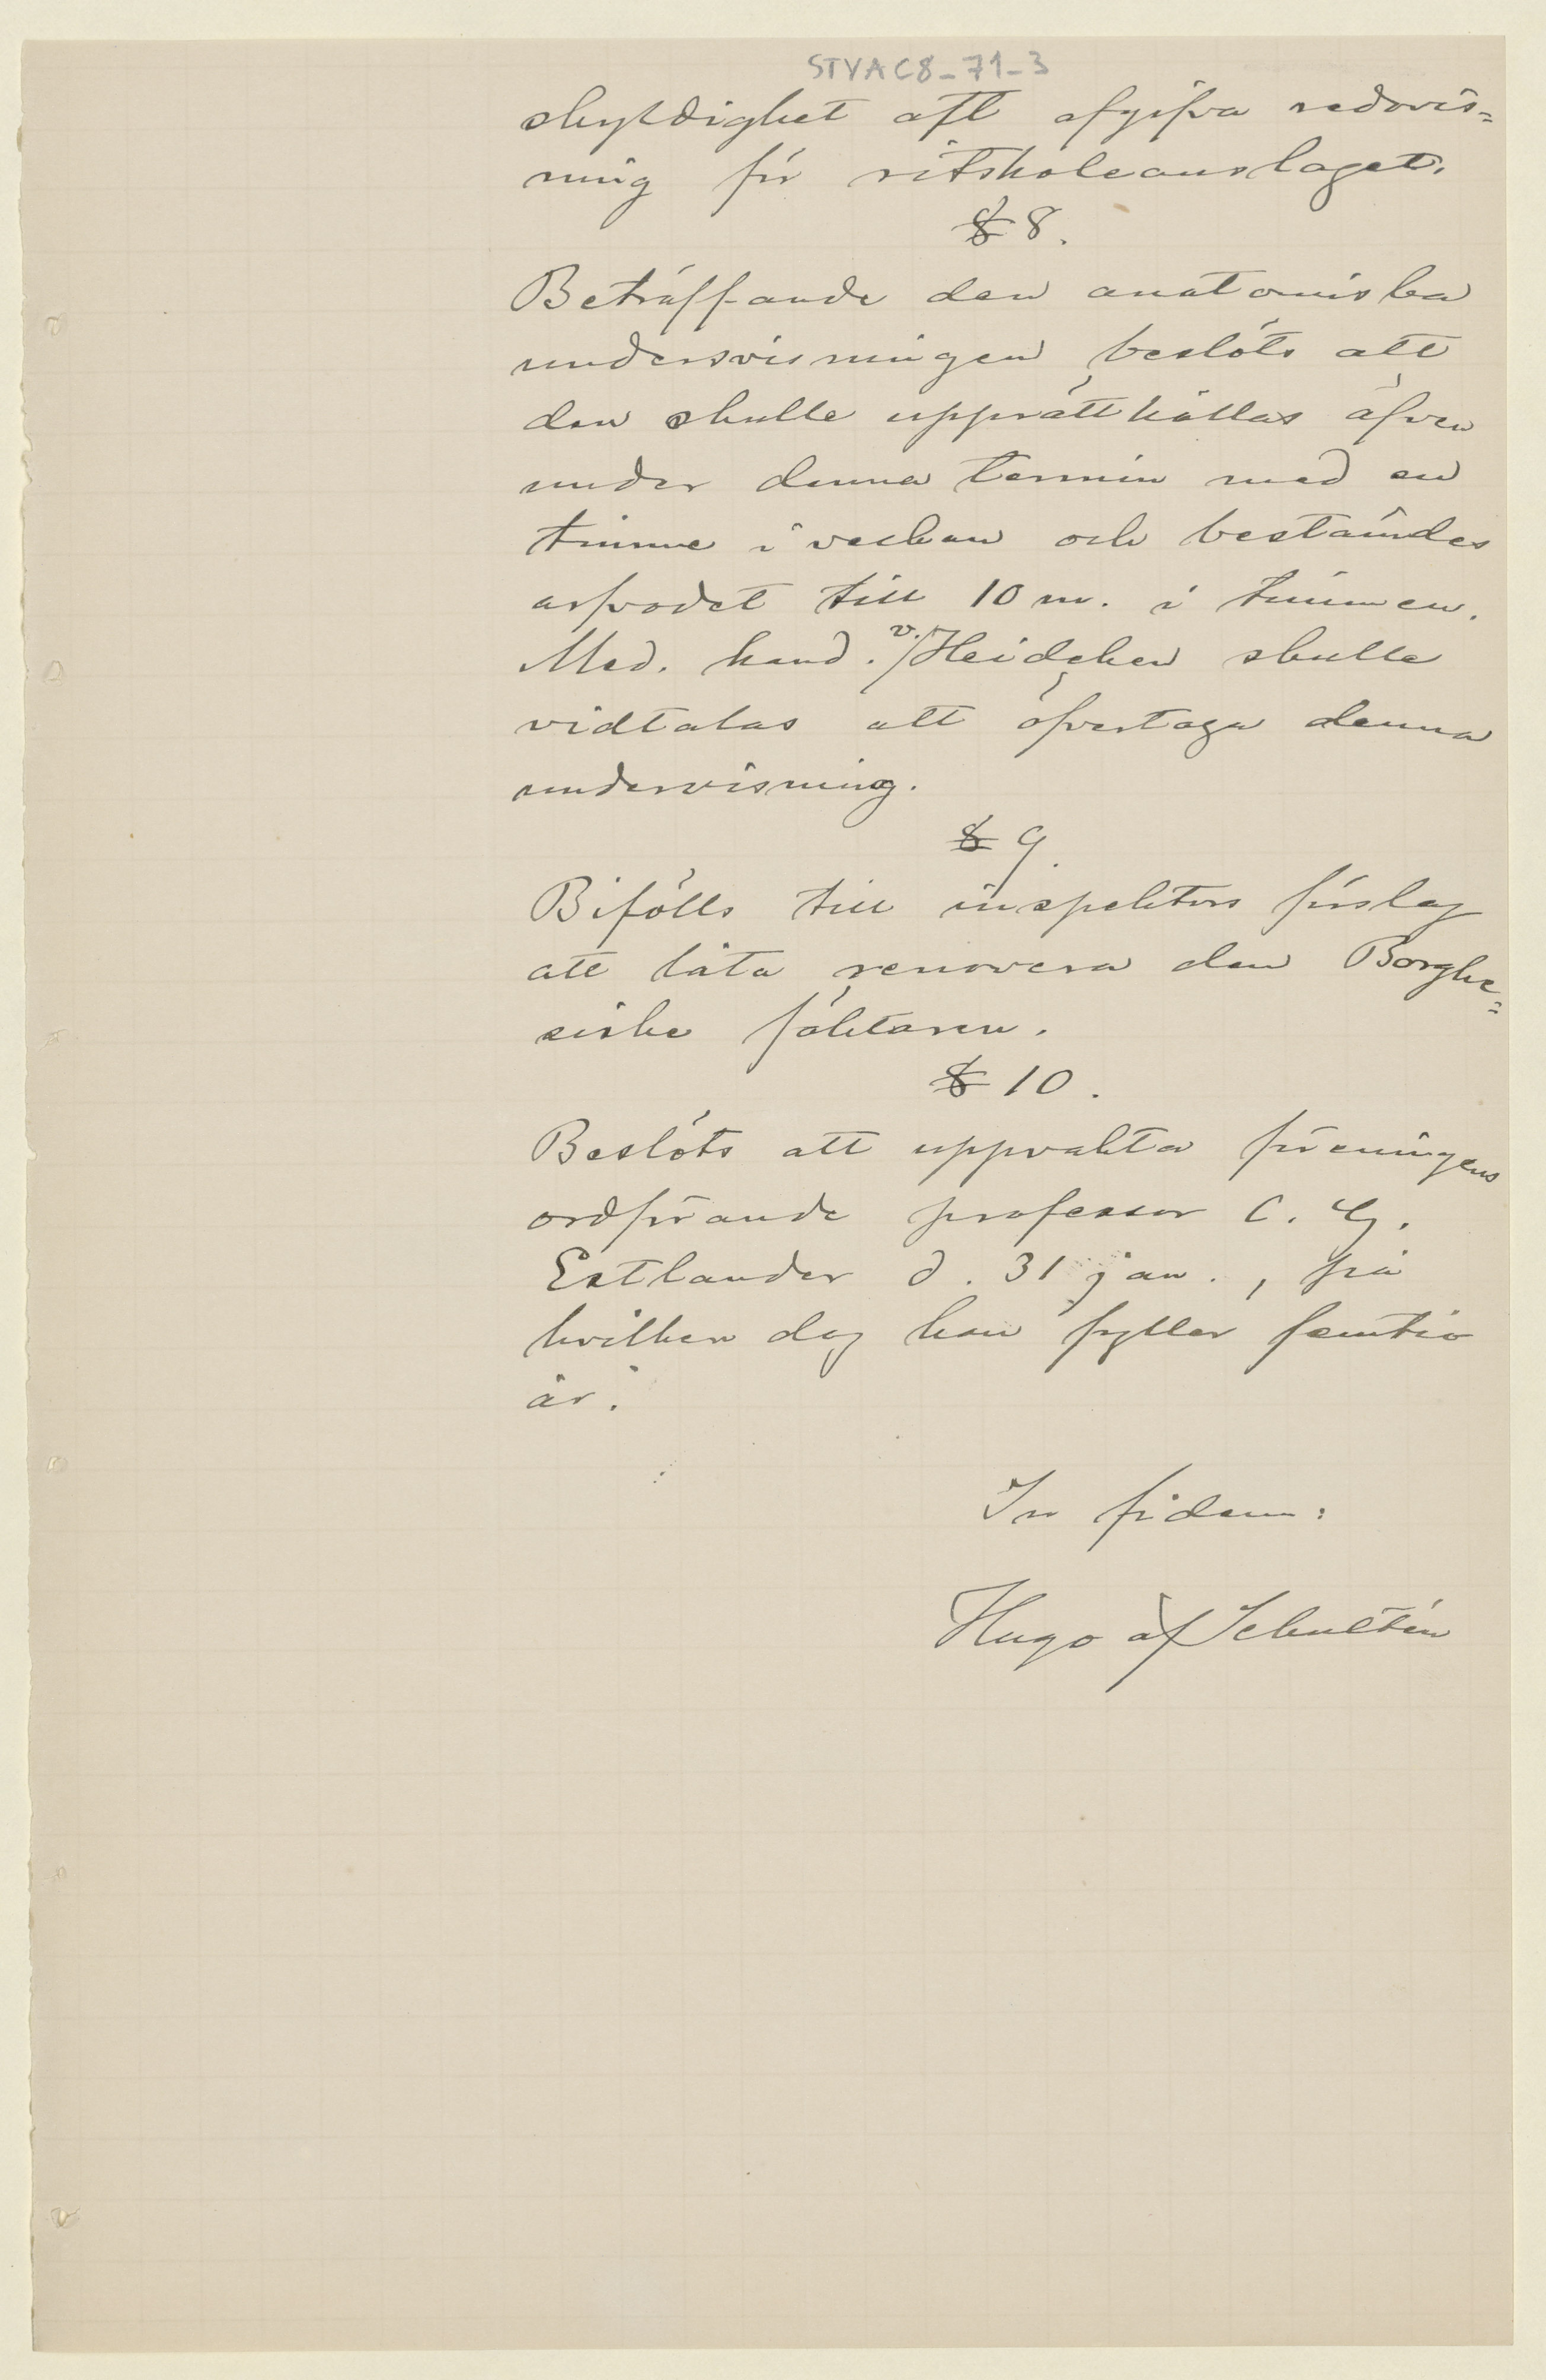 STVAC8_71_3
skyldighet att afgifva redovis=
ning för ritskoleanslaget.
§ 8.
Beträffande den anatomiska
undersvisningen beslöts att
den skulle upprätthållas äfven
under denna termin med en
timme i veckan och bestämdes
arfvodet till 10 m. i timmen.
Med. kand. v. Heideken skulle
vidtalas att öfvertaga denna
undervisning.
§ 9.
Bifölls till inspektors förslag
att låta renovera den Borghe=
siske fäktaren.
§ 10.
Beslöts att uppvakta föreningens
ordförande professor C. G.
Estlander d. 31 jan., på
hvilken dag han fyller femtio
år.
In fidem:
Hugo af Schultén